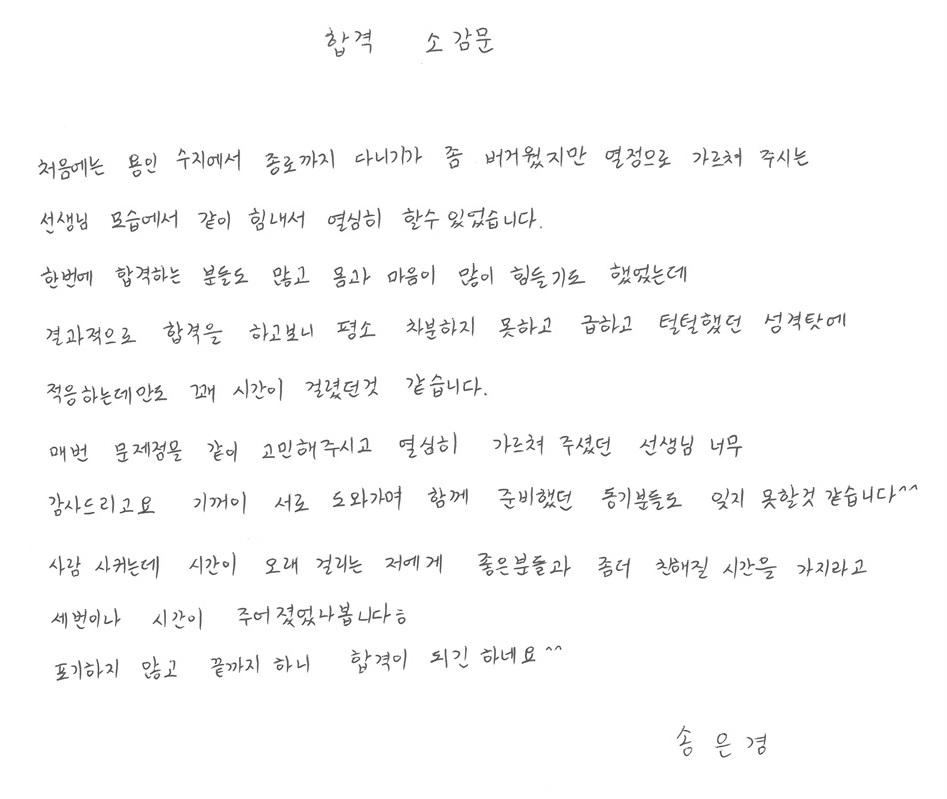 합격 소감문
처음에는 용인 수지에서 종로까지 다니기가 좀 버거웠지만 열정으로 가르쳐 주시는
선생님 모습에서 같이 힘내서 열심히 할수 있었습니다.
한번에 합격하는 분들도 많고 몸과 마음이 많이 힘들기도 했었는데
결과적으로 합격을 하고보니 평소 차분하지 못하고 급하고 털털했던 성격탓에
적응하는데만도 꽤 시간이 걸렸던것 같습니다.
매번 문제점을 같이 고민해주시고 열심히 가르쳐 주셨던 선생님 너무
감사드리고요 기꺼이 서로 도와가며 함께 준비했던 동기분들도 잊지 못할것 같습니다^^
사람 사귀는데 시간이 오래 걸리는 저에게 좋은분들과 좀더 친해질 시간을 가지라고
세번이나 시간이 주어졌었나봅니다ㅎ
포기하지 않고 끝까지 하니 합격이 되긴 하네요^^
송은경